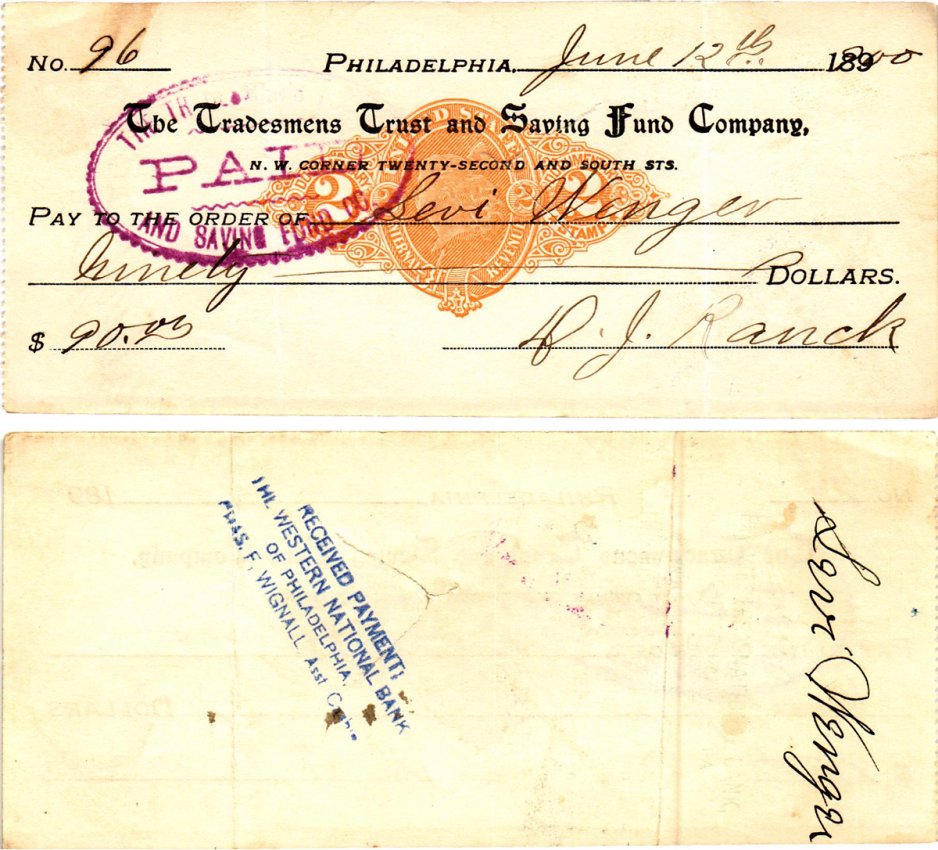 No. 96
PHILADELPHIA, June 12th 1900
The Tradesmens Trust and Saving Fund Company,
N. W. CORNER TWENTY-SECOND AND SOUTH STS.
PAID
AND SAVING FUND CO
UNITED STATES
2 2
STAMP
PAY TO THE ORDER OF Levi Wenger
Ninety DOLLARS.
$ 90.00
D. J. Ranck
RECEIVED PAYMENT:
THE WESTERN NATIONAL BANK
OF PHILADELPHIA,
CHAS. F. WIGNALL, Asst Cashr
Levi Wenger
No. PHILADELPHIA, 189
DOLLARS